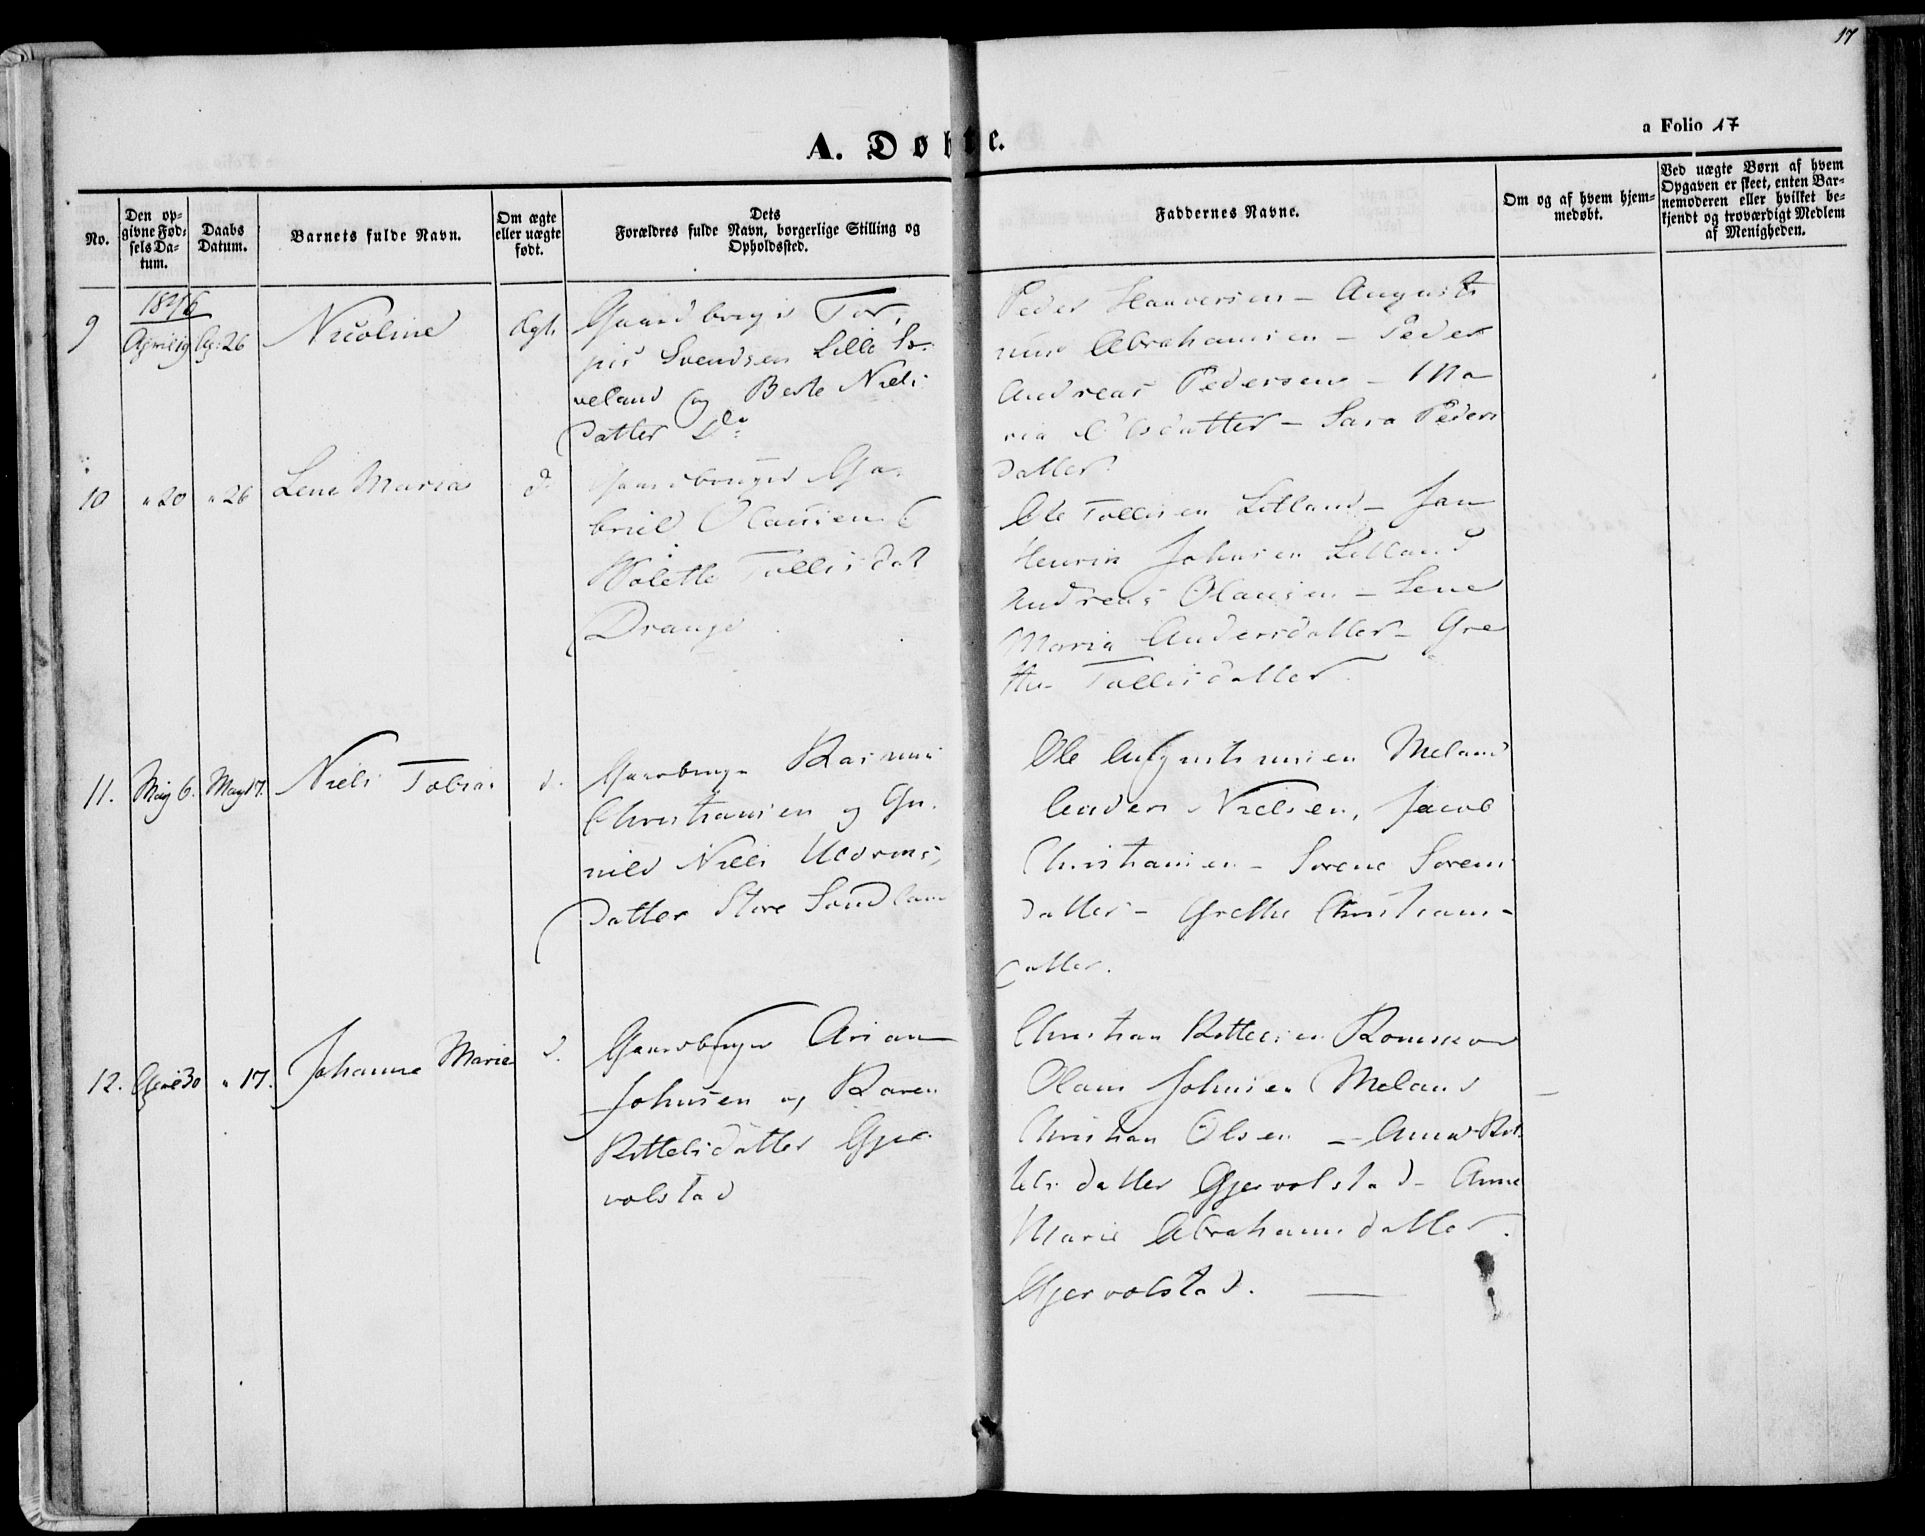 17
a Folio 17
A. Døbte.
No.
Den op-
givne Fød-
sels Da-
tum.
Daabs
Datum.
Barnets fulde Navn.
Om ægte
eller uægte
født.
Dets
Forældres fulde Navn, borgerlige Stilling og
Opholdssted.
Faddernes Navne.
Om og af hvem hjem-
medøbt.
Ved uægte Børn af hvem
Opgaven er skeet, enten Bar-
nemoderen eller hvilket be-
kjendt og troværdigt Medlem
af Menigheden.
1846
9 April 19 Ap. 26 Nicoline Ægt. Gaardbruger Tor-
Svendsen Lille
veland og Berte Niels
datter Do
Peder - August
Abrahamsen - Peder
Andreas Pedersen - Ma
ria Olsdatter - Sara Peders
datter
10 " 20 " 26 Lene Maria d. Gaardbruger Ga-
briel Olausen &
Tollisdat
Drange
Ole Tollisen Litland - Jan
Henrik Johnsen Litland
Andreas Olausen - Lene
Maria Andersdatter - Gre
the Tollisdatter.
11. May 6. May 17. Niels Tobias d. Gaardbruger Rasmus
Christiansen og Gu-
nild Niels
datter Store Sandland
Ole Augustinusen Meland
Anders Nielsen, Jacob
Christiansen - Sorene Sorens
datter - Grethe Christians-
datter.
12. April 30 " 17. Johanne Marie d. Gaardbruger Arian
Johnsen og Karen
Kittelsdatter Gjer-
volstad
Christian Kittelsen
Olaus Johnsen Meland
Christian Olsen - Anna Kit-
tels datter Gjervolstad - Anne
Marie Abrahamsdatter.
Gjervolstad.